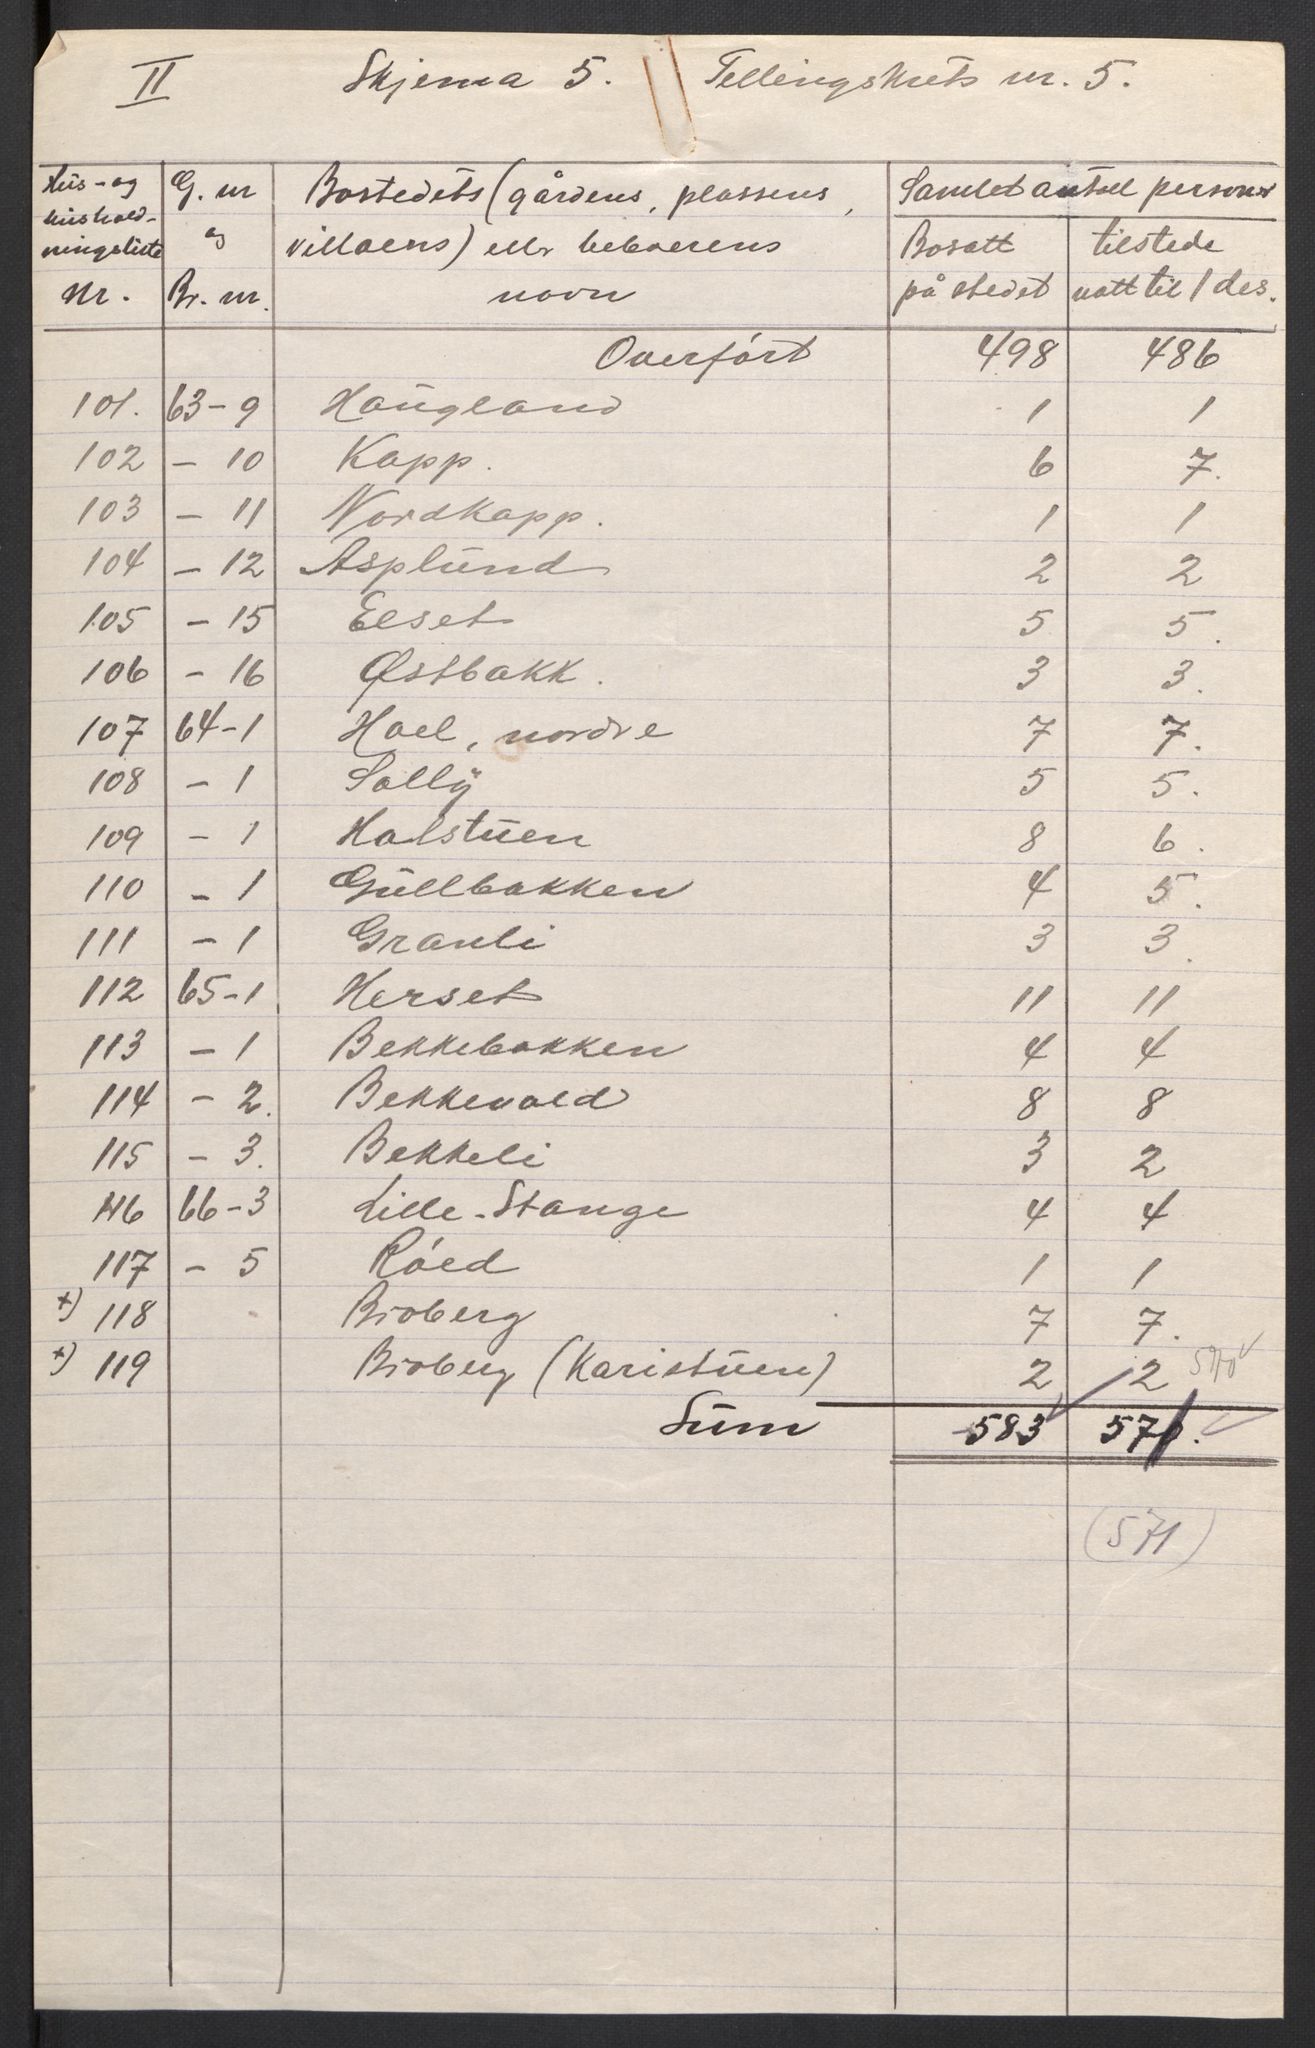 II Skjema 5. Tellingskrets nr. 5.
Hus- og hushold- ningsliste Nr.
G. nr og Br. nr.
Bostedets (gårdens, plassens, villaens) eller beboerens navn
Samlet antall personer
Bosatt på stedet
tilstede natt til 1 des.
Overført 498 486
101. 63-9 Haugland 1 1
102 - 10 Kapp. 6 7.
103 - 11 Nordkapp. 1 1
104 - 12 Asplund 2 2
105 - 15 Elset 5 5.
106 - 16 Østbakk. 3 3.
107 64-1 Hoel, nordre 7 7.
108 - 1 Solly 5 5.
109 - 1 Halstuen 8 6.
110 - 1 Gullbakken 4 5.
111 - 1 Granli 3 3.
112 65-1 Herset 11 11
113 - 1 Bekkebakken 4 4
114 - 2. Bekkevold 8 8
115 - 3. Bekkeli 3 2
116 66-3 Lille-Stange 4 4
117 - 5 Róed 1 1
+) 118 Broberg 7 7.
+) 119 Broberg (Karistuen) 2 2 570
Sum 583 570.
(571)